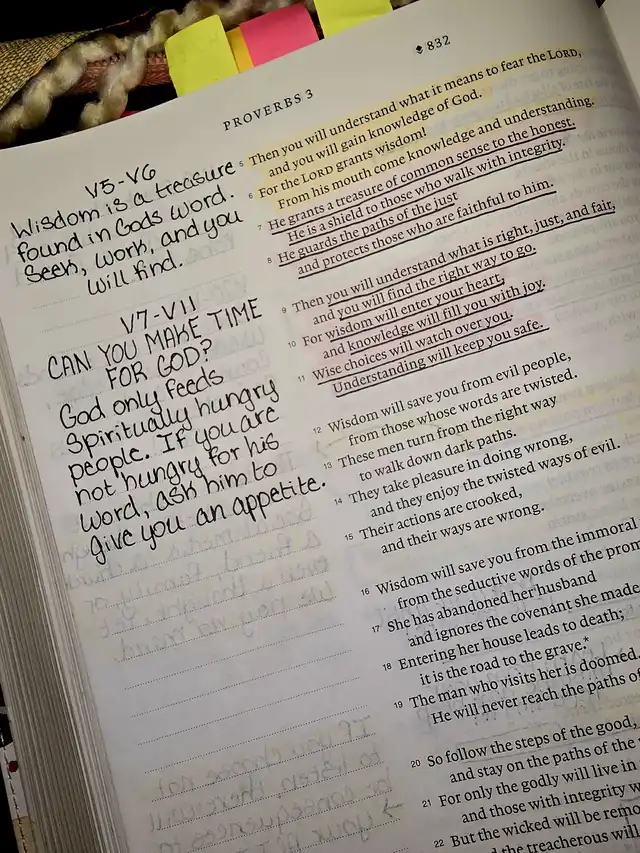 832
PROVERBS 3
V5-V6
Wisdom is a treasure
found in Gods word.
Seek, work, and you
will find.
V7-V11
CAN YOU MAKE TIME
FOR GOD?
God only feeds
Spiritually hungry
people. If you are
not hungry for his
word, ask him to
give you an appetite.
5 Then you will understand what it means to fear the LORD,
and you will gain knowledge of God.
6 For the LORD grants wisdom!
From his mouth come knowledge and understanding.
7 He grants a treasure of common sense to the honest.
He is a shield to those who walk with integrity.
8 He guards the paths of the just
and protects those who are faithful to him.
9 Then you will understand what is right, just, and fair,
and you will find the right way to go.
10 For wisdom will enter your heart,
and knowledge will fill you with joy.
11 Wise choices will watch over you.
Understanding will keep you safe.
12 Wisdom will save you from evil people,
from those whose words are twisted.
13 These men turn from the right way
to walk down dark paths.
14 They take pleasure in doing wrong,
and they enjoy the twisted ways of evil.
15 Their actions are crooked,
and their ways are wrong.
16 Wisdom will save you from the immoral
from the seductive words of the
17 She has abandoned her husband
and ignores the covenant she made
18 Entering her house leads to death;
it is the road to the grave.*
19 The man who visits her is doomed.
He will never reach the paths of
20 So follow the steps of the good,
and stay on the paths of the
21 For only the godly will live in
and those with integrity
22 But the wicked will be
the treacherous will